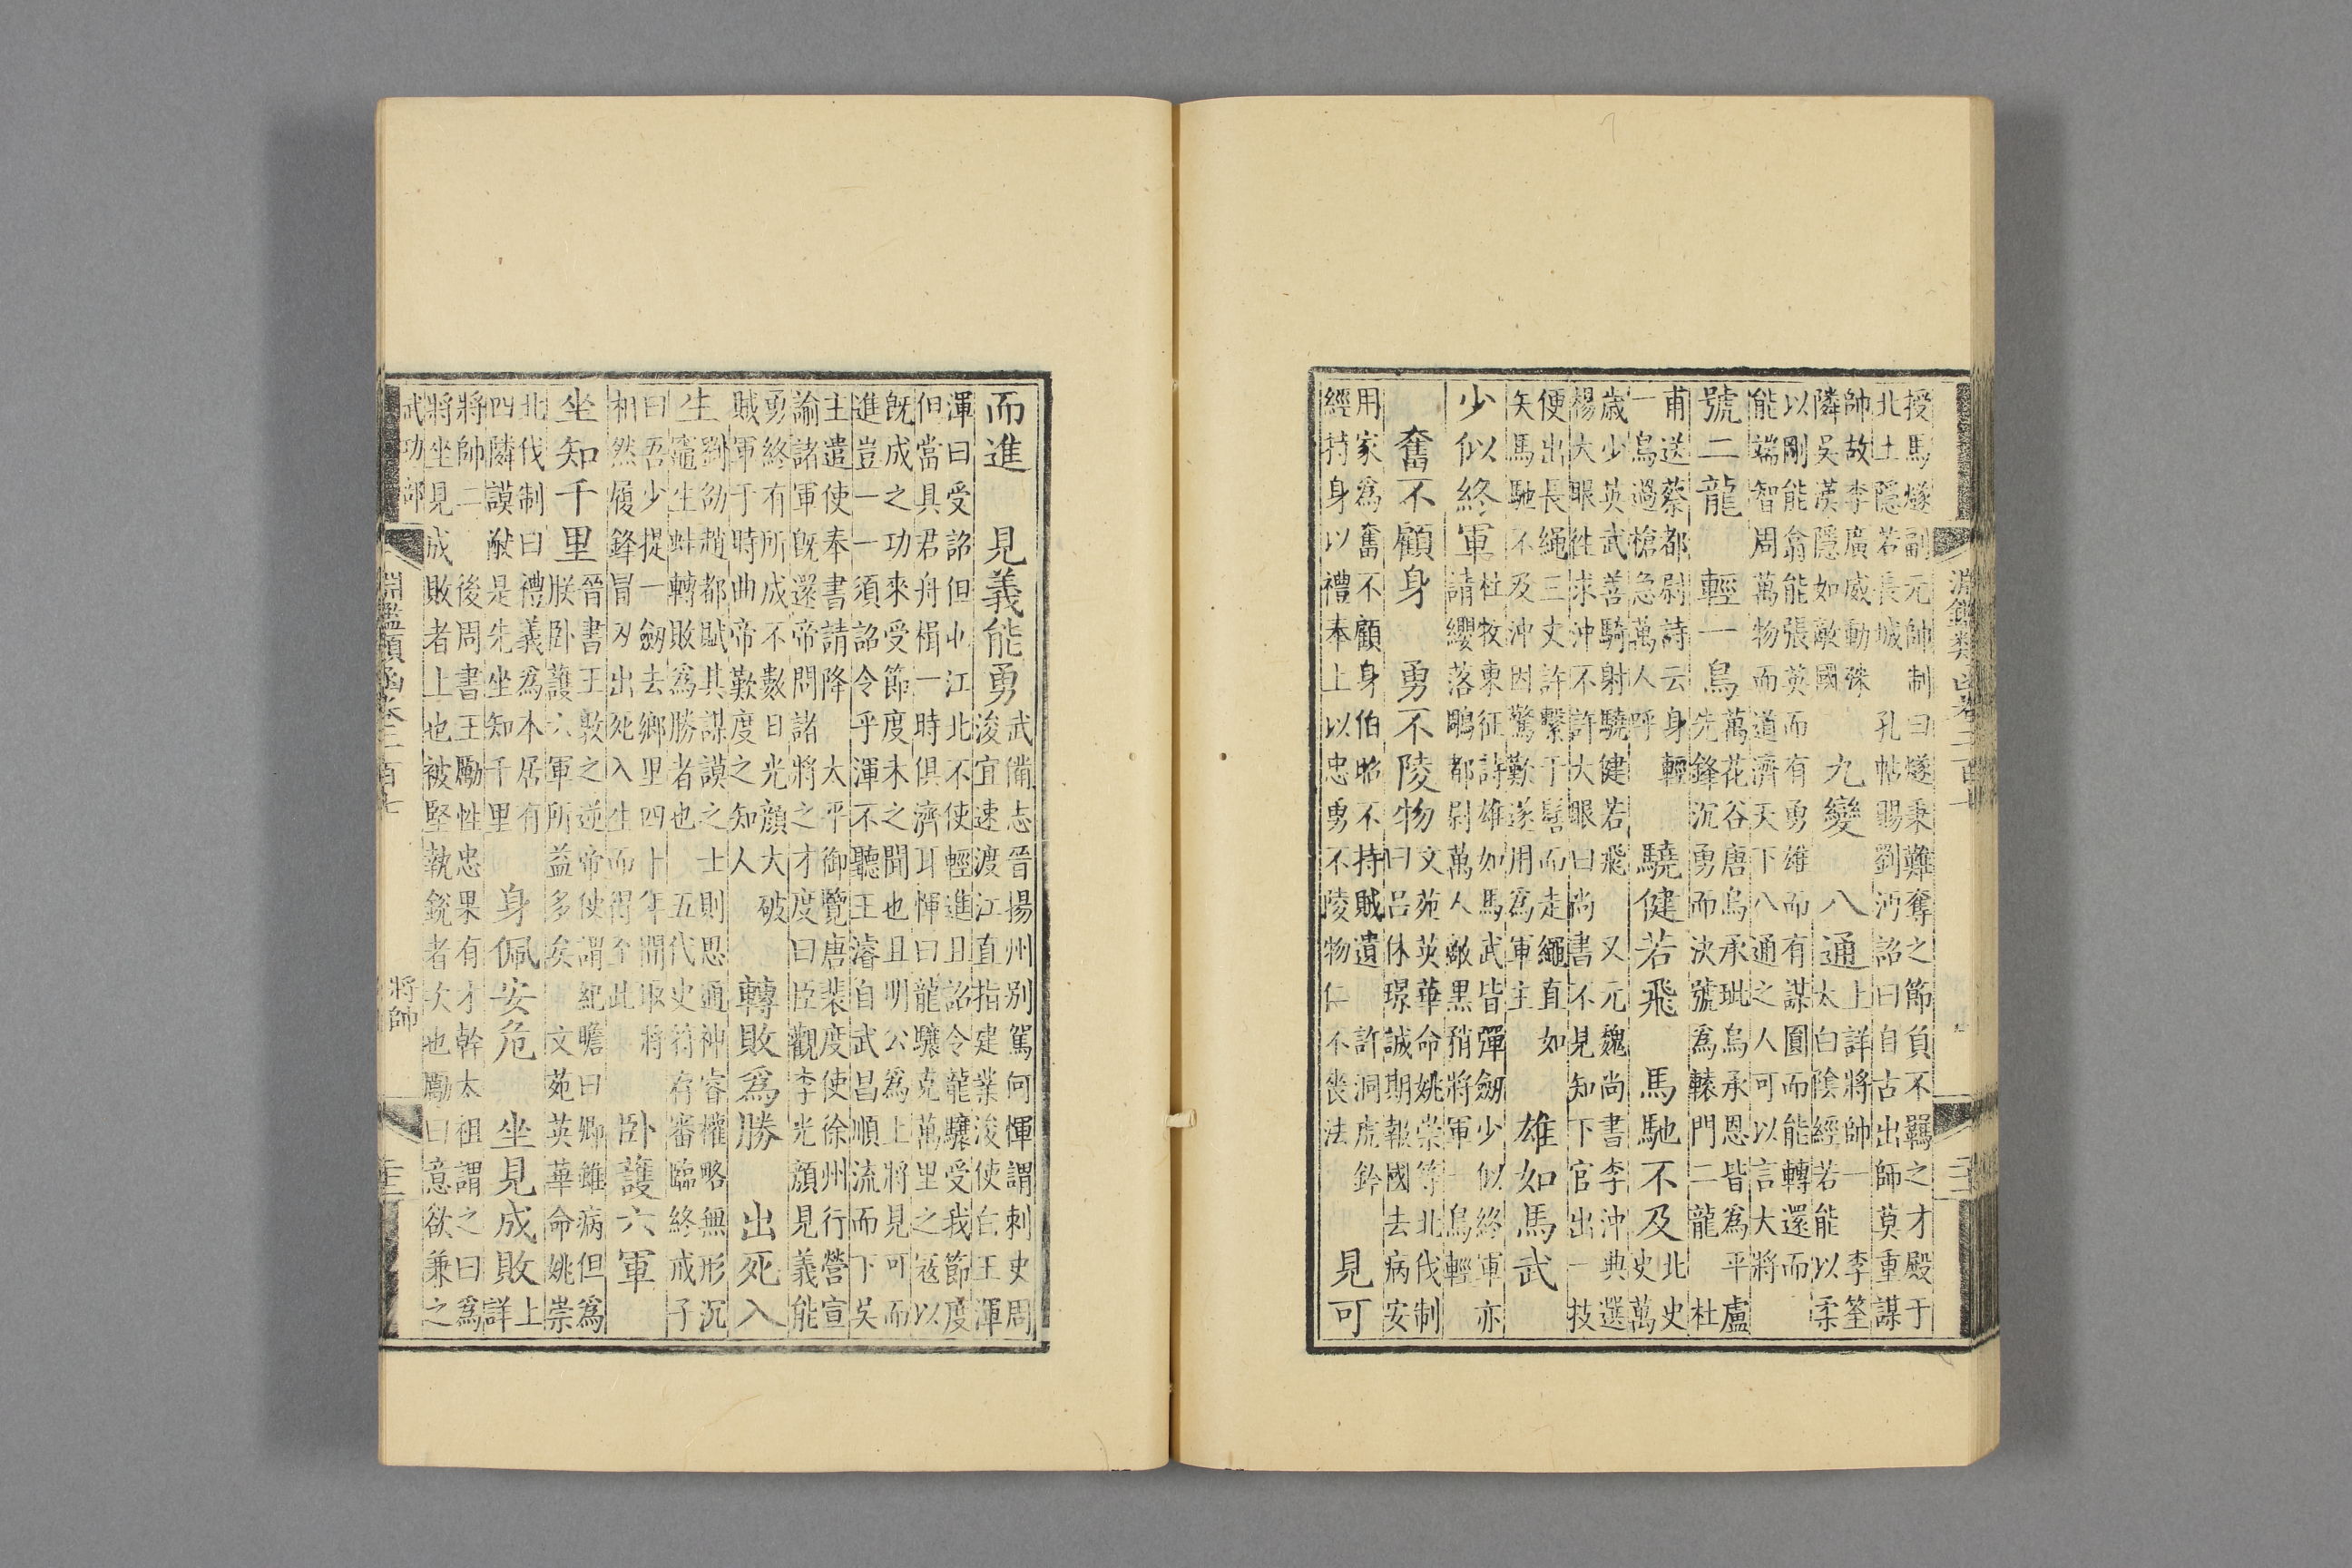 淵鑑類函卷二百十
授馬燧副元帥制曰燧秉難奪之節負不羈之才殿于
北土隱若長城 孔帖賜劉沔詔曰自古出師莫重謀
帥故李廣威動殊
隣吳漢隱如敵國
九變 八通
上詳將帥一 李筌
太白陰經若能以柔
以剛能翕能張英而有勇雄而有謀圓而能轉還而
能端智周萬物而道濟天下八通之人可以言大將
號二龍 輕一鳥
萬花谷唐烏承玼烏承恩皆爲平盧
先鋒沉勇而決號爲轅門二龍 杜
甫送蔡都尉詩云身輕
一鳥過槍急萬人呼
驍健若飛 馬馳不及
北史
史萬
歲少英武善騎射驍健若飛 又元魏尚書李沖典選
楊大眼徃求沖不許大眼曰尚書不見知下官出一技
便出長繩三丈許繫于髻而走繩直如
矢馬馳不及沖因驚歎遂用爲軍主
雄如馬武
少似終軍
杜牧東征詩雄如馬武皆彈劒少似終軍亦
請纓落鵰都尉萬人敵黑矟將軍一鳥輕
奮不顧身 勇不陵物
文苑英華命姚崇等北伐制
曰呂休璟誠期報國去病安
用家爲奮不顧身伯昭不持賊遺 許洞虎鈐
經持身以禮奉上以忠勇不陵物仁不喪法
見可
而進 見義能勇
武備志晉揚州別駕何惲謂刺史周
浚宜速渡江直指建業浚使白王渾
渾曰受詔但屯江北不使輕進且詔令龍驤受我節度
但當具君舟楫一時俱濟耳惲曰龍驤克萬里之寇以
旣成之功來受節度未之聞也且明公爲上將見可而
進豈一一須詔令乎渾不聽王濬自武昌順流而下吳
主遣使奉書請降 太平御覽唐裴度使徐州行營宣
諭諸軍旣還帝問諸將之才度曰臣觀李光顏見義能
勇終有所成不數日光顏大破
賊軍于時曲帝歎度之知人
轉敗爲勝 出死入
生
劉劭趙都賦其謀謨之士則思通神睿權略無形沉
竈生蛙轉敗爲勝者也 五代史符存審臨終戒子
曰吾少提一劒去鄉里四十年間取將
相然履鋒冒刃出死入生而得至此
卧護六軍
坐知千里
晉書王敦之逆帝使謂紀瞻曰卿雖病但爲
朕卧護六軍所益多矣 文苑英華命姚崇
北伐制曰禮義爲本居有
四隣謨猷是先坐知千里
身佩安危 坐見成敗
上
詳
將帥二 後周書王勵性忠果有才幹太祖謂之曰爲
將坐見成敗者上也被堅執銳者次也勵曰意欲兼之
武功部 淵鑑類函卷二百七 將帥